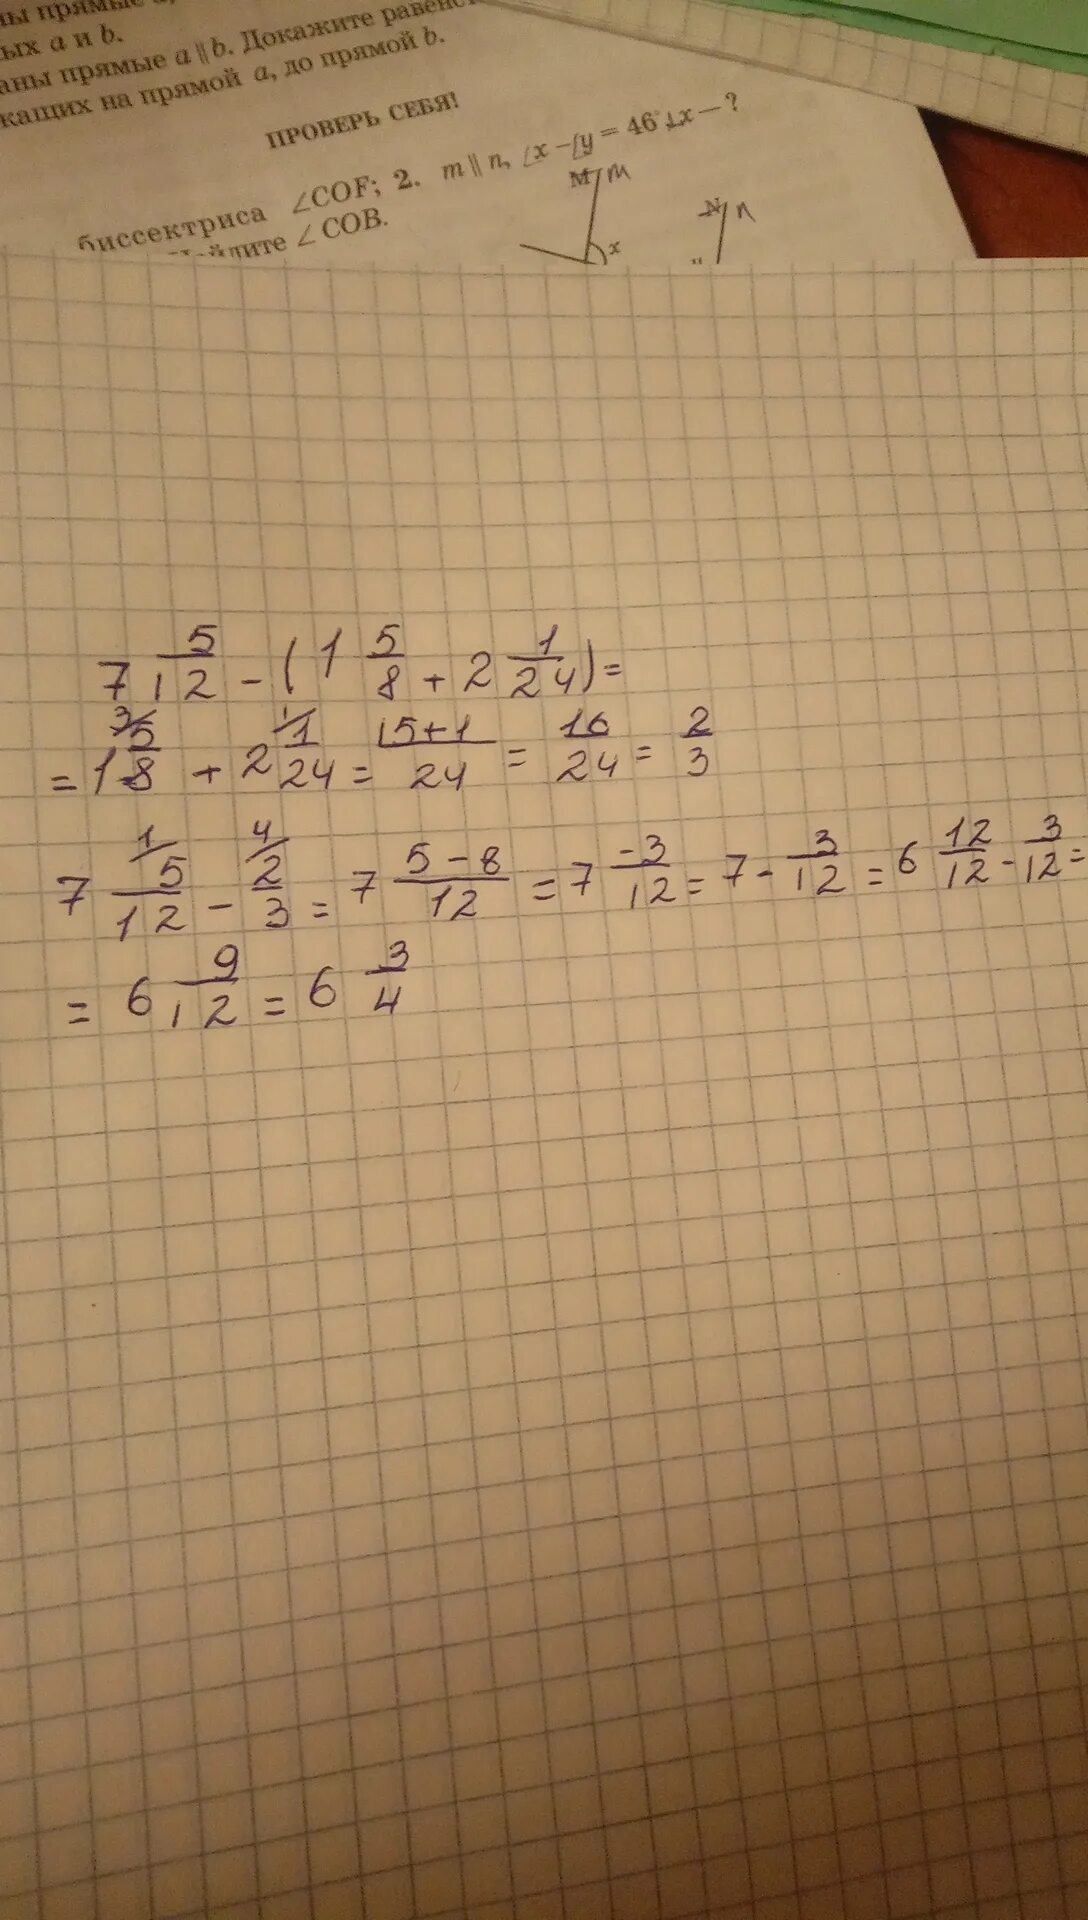 ных a и b.
аны прямые a ∥ b. Докажите равенст
жащих на прямой a, до прямой b.
ПРОВЕРЬ СЕБЯ!
биссектриса ∠COF; 2. m ∥ n, ∠x − ∠y = 46° ∠x − ?
∠COB.
M m
N n
x
7 5/12 - (1 5/8 + 2 1/24) =
3 1
= 1 5/8 + 2 1/24 = 15+1/24 = 16/24 = 2/3
1 4
7 5/12 - 2/3 = 7 5-8/12 = 7 -3/12 = 7 - 3/12 = 6 12/12 - 3/12 =
= 6 9/12 = 6 3/4